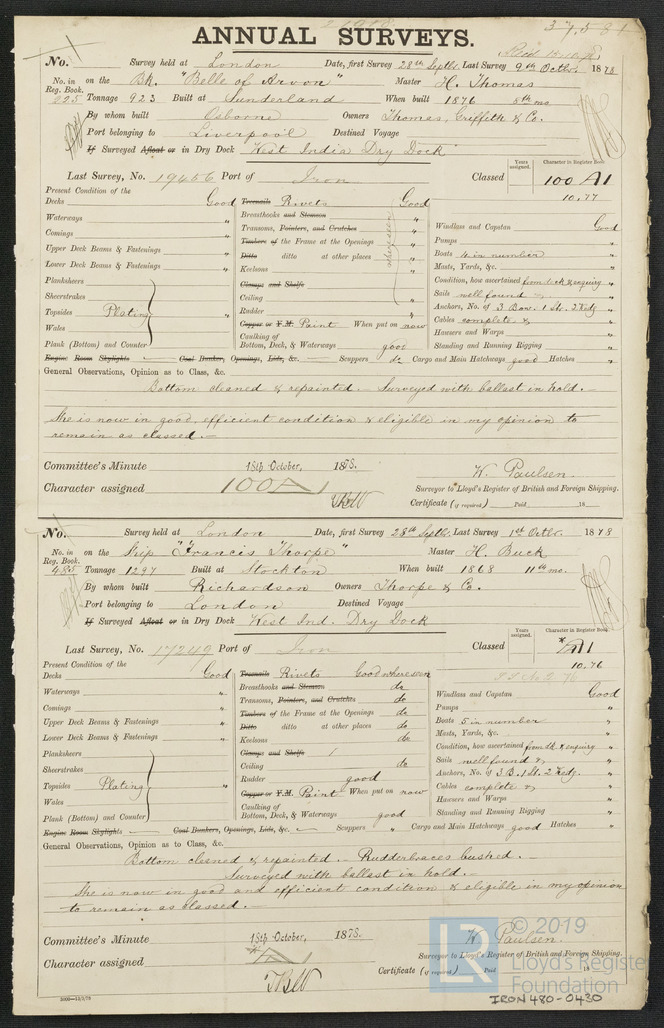 37,581
ANNUAL SURVEYS.
No. Survey held at London Date, first Survey 28th Septbr. Last Survey 9th Octbr. 1878
No. in Reg. Book. on the Bk. "Belle of Arvon" Master H. Thomas
225 Tonnage 923 Built at Sunderland When built 1876 8th mo.
By whom built Osborne Owners Thomas, Griffith & Co.
Port belonging to Liverpool Destined Voyage
If Surveyed Afloat or in Dry Dock West India Dry Dock
Last Survey, No. 19456 Port of Iron Classed Years assigned. Character in Register Book. 100 A1
10.77
Present Condition of the
Decks Good
Waterways "
Comings "
Upper Deck Beams & Fastenings "
Lower Deck Beams & Fastenings "
Planksheers
Sheerstrakes
Topsides Plating "
Wales
Plank (Bottom) and Counter
Treenails Rivets Good
Breasthooks and Stemson
Transoms, Pointers, and Crutches
Timbers of the Frame at the Openings
Ditto ditto at other places
Keelsons
Clamps and Shelfs
Ceiling "
Rudder "
Copper or Y.M. Paint When put on now
Caulking of Bottom, Deck, & Waterways good
Windlass and Capstan Good
Pumps "
Boats 4 in number "
Masts, Yards, &c. "
Condition, how ascertained from deck & enquiry "
Sails well found "
Anchors, No. of 3 Bow. 1 St. 2 Kedg "
Cables complete & "
Hawsers and Warps "
Standing and Running Rigging "
Engine Room Skylights Coal Bunker, Openings, Lids, &c. Scuppers do Cargo and Main Hatchways good Hatches "
General Observations, Opinion as to Class, &c.
Bottom cleaned & repainted.— Surveyed with ballast in hold.—
She is now in good, efficient condition & eligible in my opinion to
remain as classed.—
Committee's Minute 18th October, 1878.
Character assigned 100A1
W. Paulsen.
Surveyor to Lloyd's Register of British and Foreign Shipping.
Certificate (if required) Paid 18
No. Survey held at London Date, first Survey 28th Septbr. Last Survey 1st Octbr. 1878
No. in Reg. Book. on the Ship "Francis Thorpe" Master H. Buck
485 Tonnage 1297 Built at Stockton When built 1868 11th mo.
By whom built Richardson Owners Thorpe & Co.
Port belonging to London Destined Voyage
If Surveyed Afloat or in Dry Dock West Ind. Dry Dock
Last Survey, No. 17249 Port of Iron Classed Years assigned. Character in Register Book.
10.76
Present Condition of the
Decks Good
Waterways "
Comings "
Upper Deck Beams & Fastenings "
Lower Deck Beams & Fastenings "
Planksheers
Sheerstrakes
Topsides Plating "
Wales
Plank (Bottom) and Counter
Treenails Rivets Good where seen
Breasthooks and Stemson do
Transoms, Pointers, and Crutches do
Timbers of the Frame at the Openings do
Ditto ditto at other places do
Keelsons do
Clamps and Shelfs
Ceiling do
Rudder good
Copper or Y.M. Paint When put on now
Caulking of Bottom, Deck, & Waterways good
Windlass and Capstan Good
Pumps "
Boats 5 in number "
Masts, Yards, &c. "
Condition, how ascertained from dk & enquiry "
Sails well found & "
Anchors, No. of 3 B. 1 St. 2 Kedg. "
Cables complete & "
Hawsers and Warps "
Standing and Running Rigging "
Engine Room Skylights Coal Bunkers, Openings, Lids, &c. Scuppers " Cargo and Main Hatchways good Hatches "
General Observations, Opinion as to Class, &c.
Bottom cleaned & repainted.— Rudderbraces bushed.—
Surveyed with ballast in hold.—
She is now in good and efficient condition & eligible in my opinion
to remain as classed.—
Committee's Minute 18th October, 1878.
Character assigned
W. Paulsen.
Surveyor to Lloyd's Register of British and Foreign Shipping.
Certificate (if required) Paid 18
© 2019
Lloyd's Register
Foundation
LR
IRON 480-0430